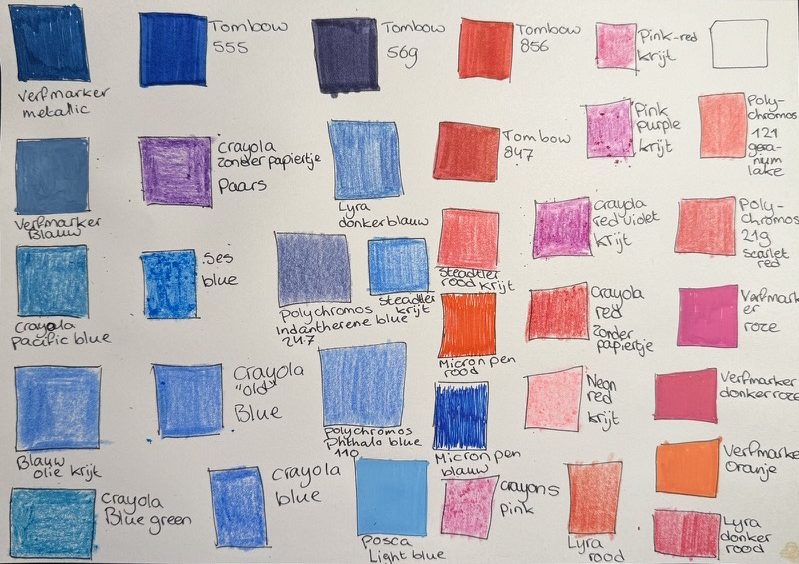 Verfmarker
metallic
Tombow
555
Tombow
569
Tombow
856
Pink-red
krijt
Verfmarker
Blauw
Crayola
zonder papiertje
Paars
Lyra
donkerblauw
Tombow
847
Pink
purple
krijt
Poly-
chromos
121
gera-
nium
lake
Crayola
pacific blue
Ses
blue
Polychromos
Indantherene blue
247
Steadtler
krijt
Steadtler
rood krijt
Crayola
red violet
krijt
Poly-
chromos
219
Scarlet
red
Micron pen
rood
Crayola
red
zonder
papiertje
Verfmark
er
roze
Blauw
olie krijt
Crayola
"old"
Blue
Polychromos
Phthalo blue
110
Micron pen
blauw
Neon
red
krijt
Verfmarker
donkerroze
Crayola
Blue green
Crayola
blue
Posca
Light blue
Crayons
pink
Lyra
rood
Verfmarke
Oranje
Lyra
donker
rood